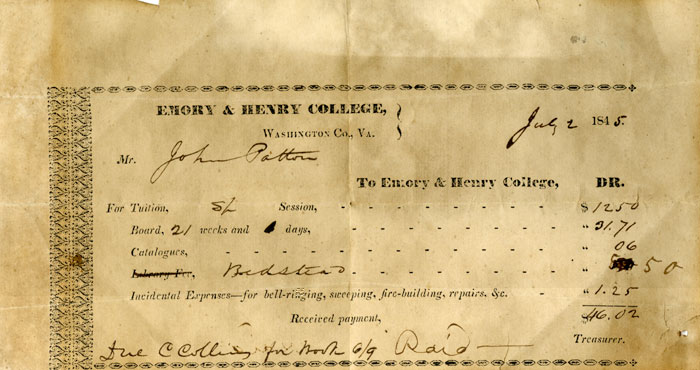 EMORY & HENRY COLLEGE,
WASHINGTON CO., VA.
July 2 1845.
Mr. John Patton
To Emory & Henry College, DR.
For Tuition, Session, $ 12 50
Board, 21 weeks and days, " 31.71
Catalogues, " 06
Library Fee, Bedstead " 50
Incidental Expenses—for bell-ringing, sweeping, fire-building, repairs, &c. " 1.25
$ 46.02
Received payment,
Treasurer.
Due C Collins for Book 6/9 Paid